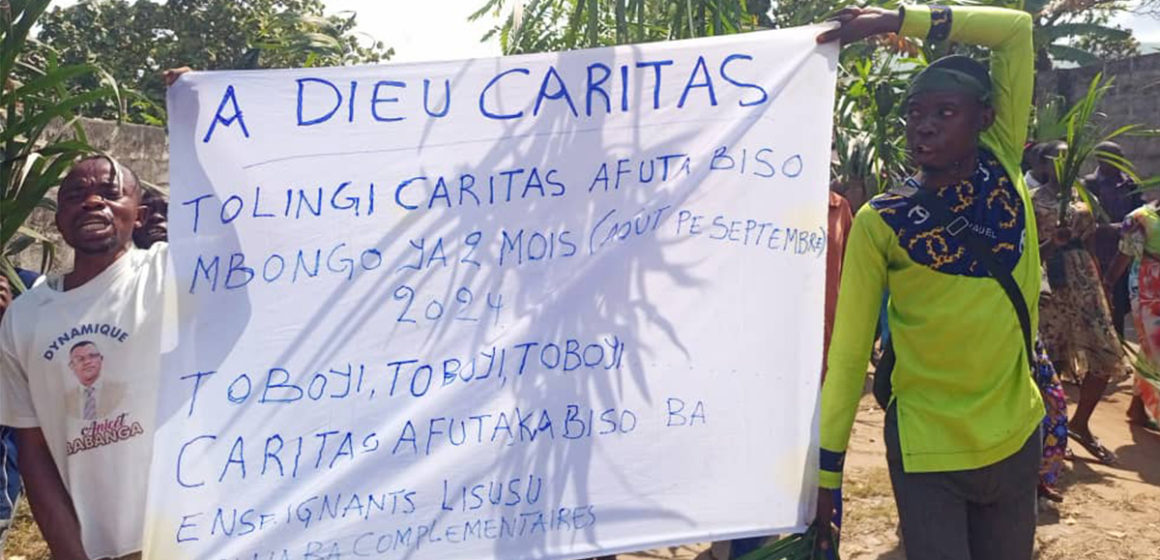 A DIEU CARITAS
TOLINGI CARITAS AFUTA BISO
MBONGO YA 2 MOIS (AOÛT PE SEPTEMBRE)
2024
TOBOYI, TOBOYI, TOBOYI
CARITAS AFUTAKA BISO BA
ENSEIGNANTS LISUSU
BA COMPLEMENTAIRES
DYNAMIQUE
Anicet
BABANGA